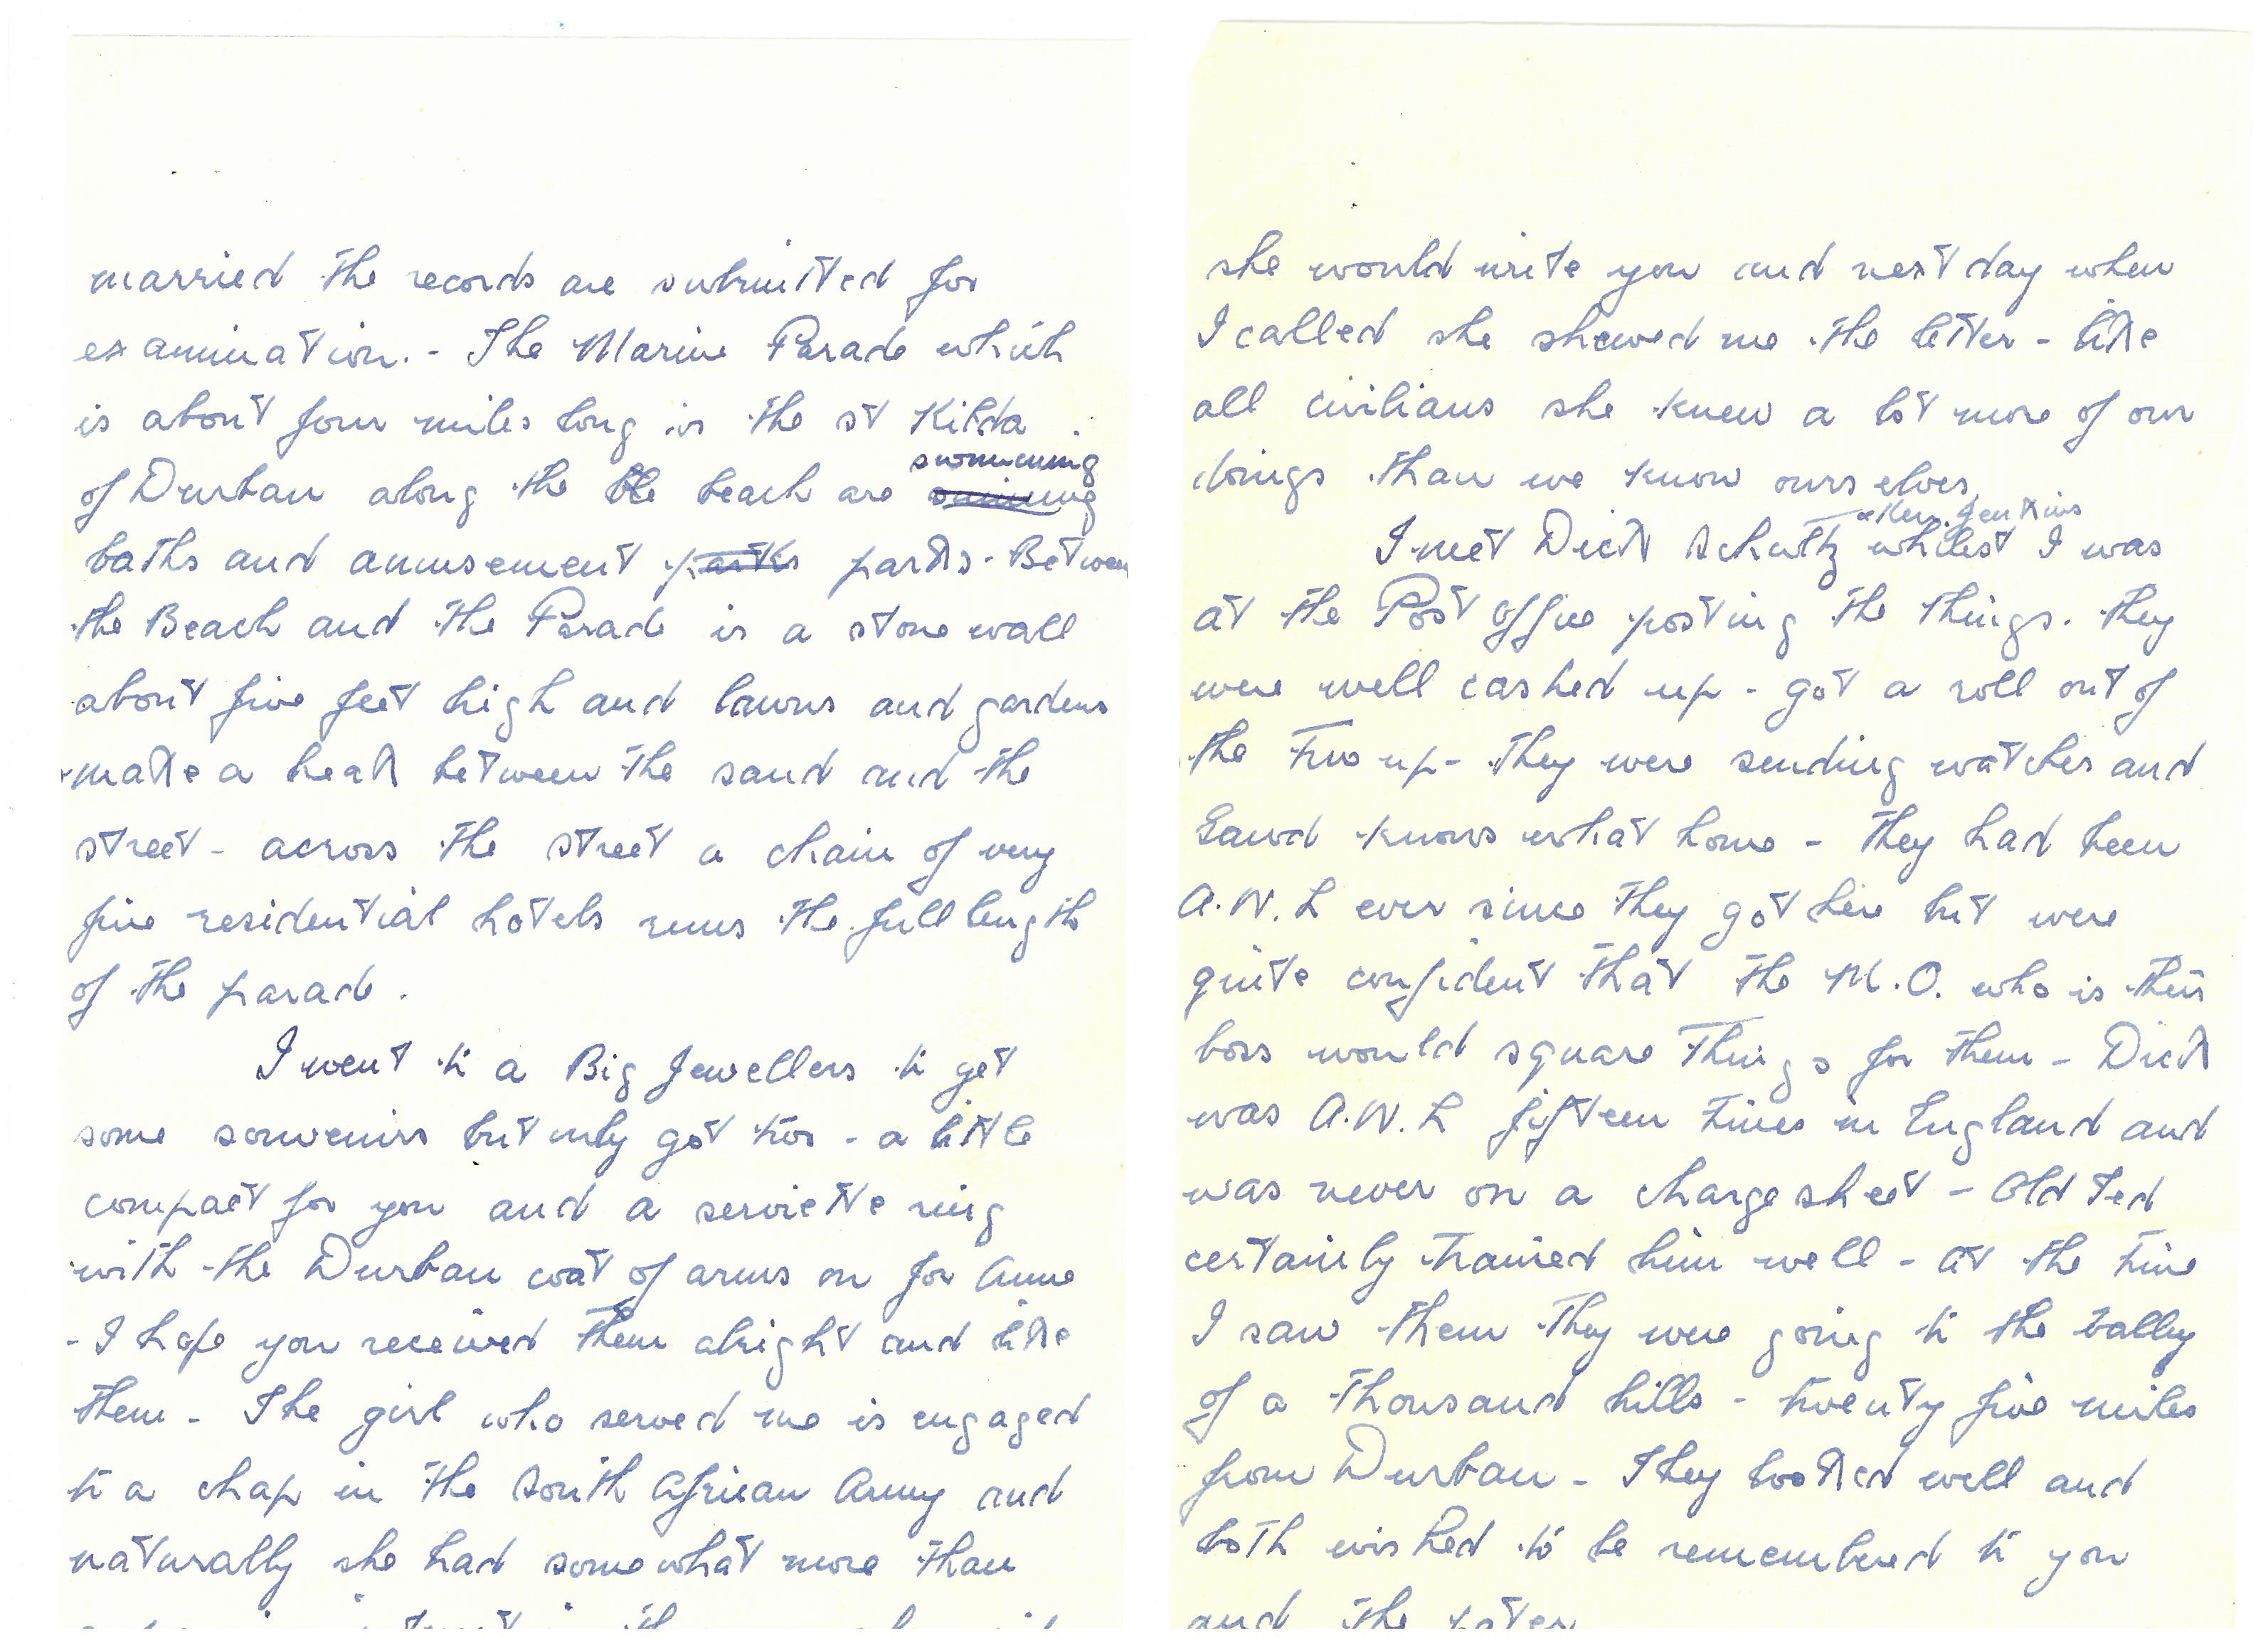 married the records are submitted for
examination. - The Marine Parade which
is about four miles long is the st Kilda
of Durban along the the beach are swimming
baths and amusement parks parks - Between
the Beach and the Parade is a stone wall
about five feet high and lawns and gardens
make a break between the sand and the
street - across the street a chain of very
fine residential hotels runs the full length
of the parade.
I went to a Big Jewellers to get
some souvenirs but only got two - a little
compact for you and a serviette ring
with the Durban coat of arms on for Anne
- I hope you received them alright and like
them - The girl who served me is engaged
to a chap in the South African Army and
naturally she had somewhat more than
she would write you and next day when
I called she shewed me the letter - like
all civilians she knew a lot more of our
doings than we know ourselves.
& Ken Jenkins
I met Dick Schultz whilest I was
at the Post Office posting the things. they
were well cashed up - got a roll out of
the two up - they were sending watches and
Gawd knows what home - they had been
A.W.L ever since they got here but were
quite confident that the M.O. who is their
boss would square things for them - Dick
was A.W.L fifteen times in England and
was never on a charge sheet - Old Ted
certainly trained him well - at the time
I saw them they were going to the Valley
of a thousand hills - twenty five miles
from Durban - They looked well and
both wished to be remembered to you
and the